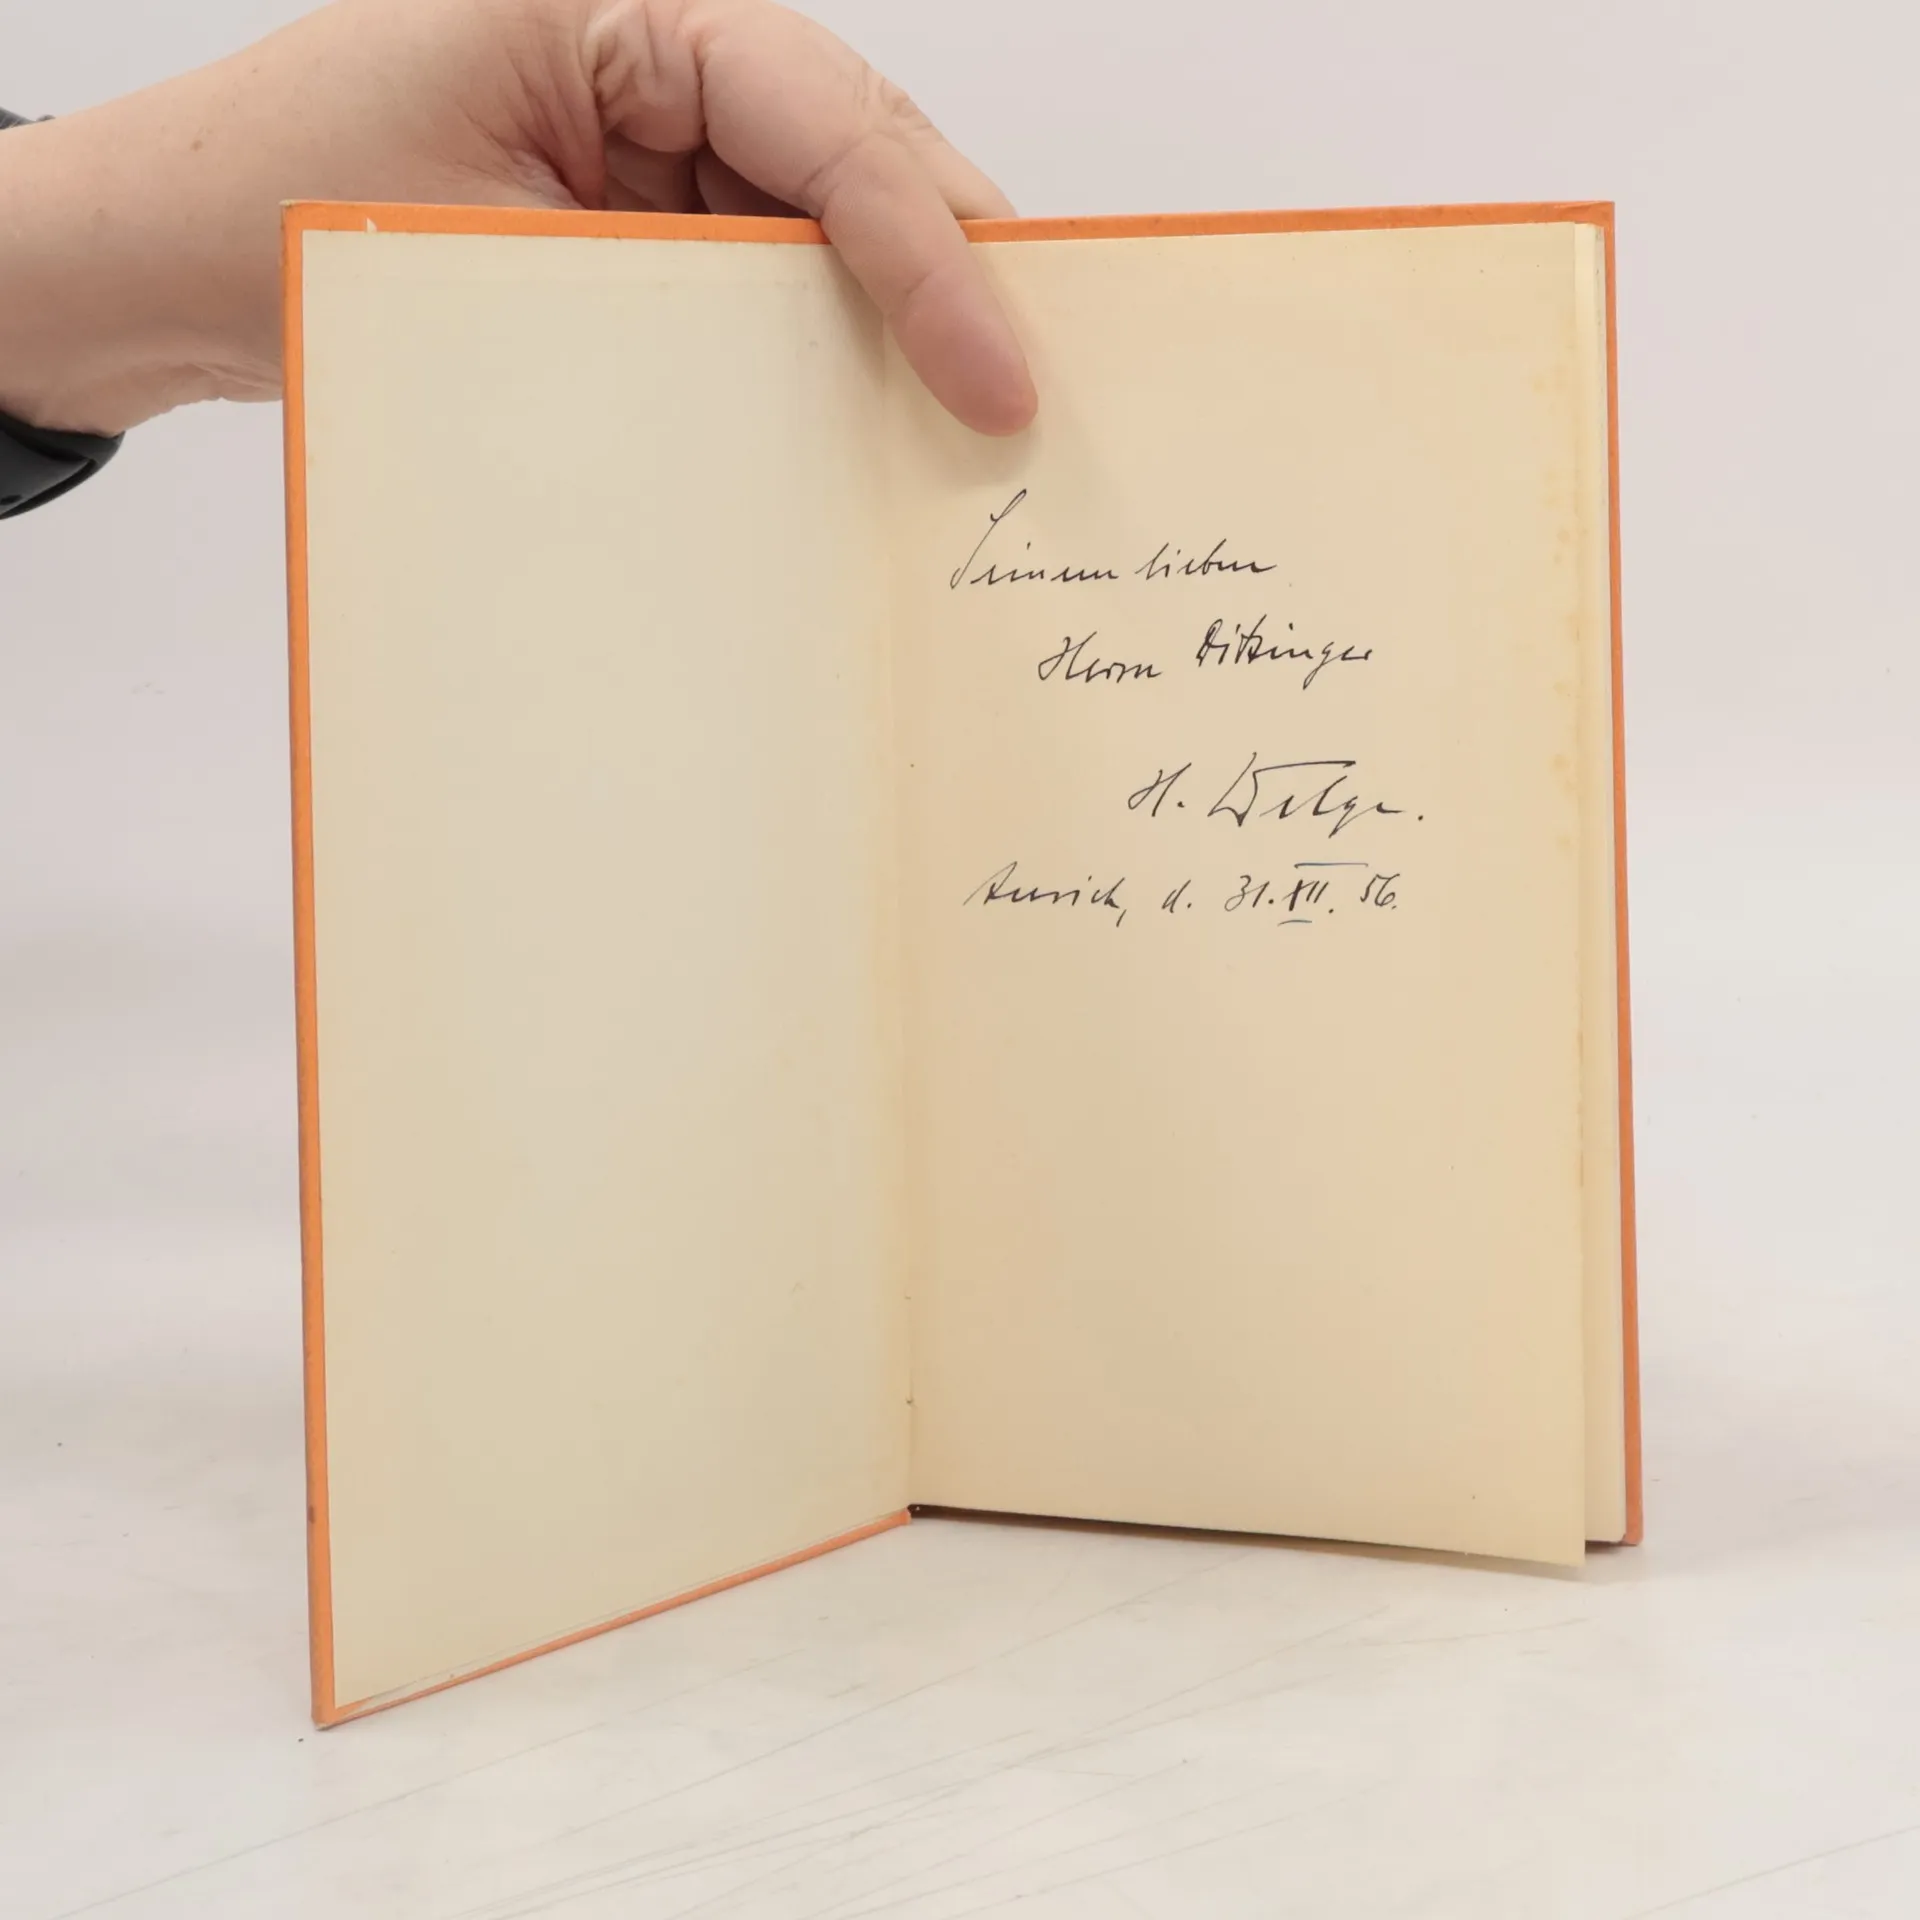 Seinem lieben
Herrn Ditzinger
H.
Aurich, d. 31. XII. 56.